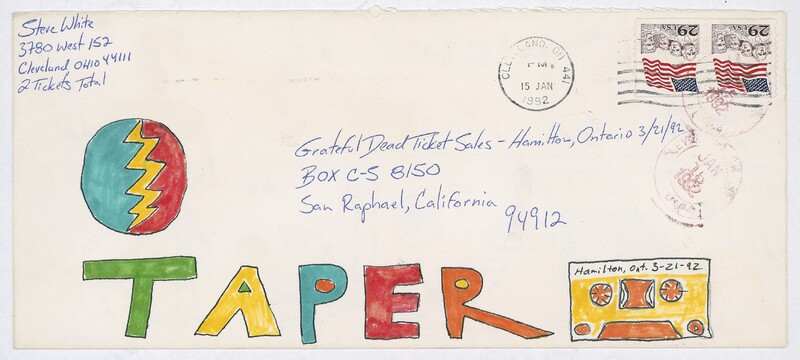 Steve White
3780 West 152
Cleveland OHIO 44111
2 Tickets Total
CLEVELAND, OH 441
PM
15 JAN
1992
29
USA
29
USA
Grateful Dead Ticket Sales - Hamilton, Ontario 3/21/92
BOX C-S 8150
San Raphael, California
94912
JAN
1992
TAPER
Hamilton, Ont. 3-21-92